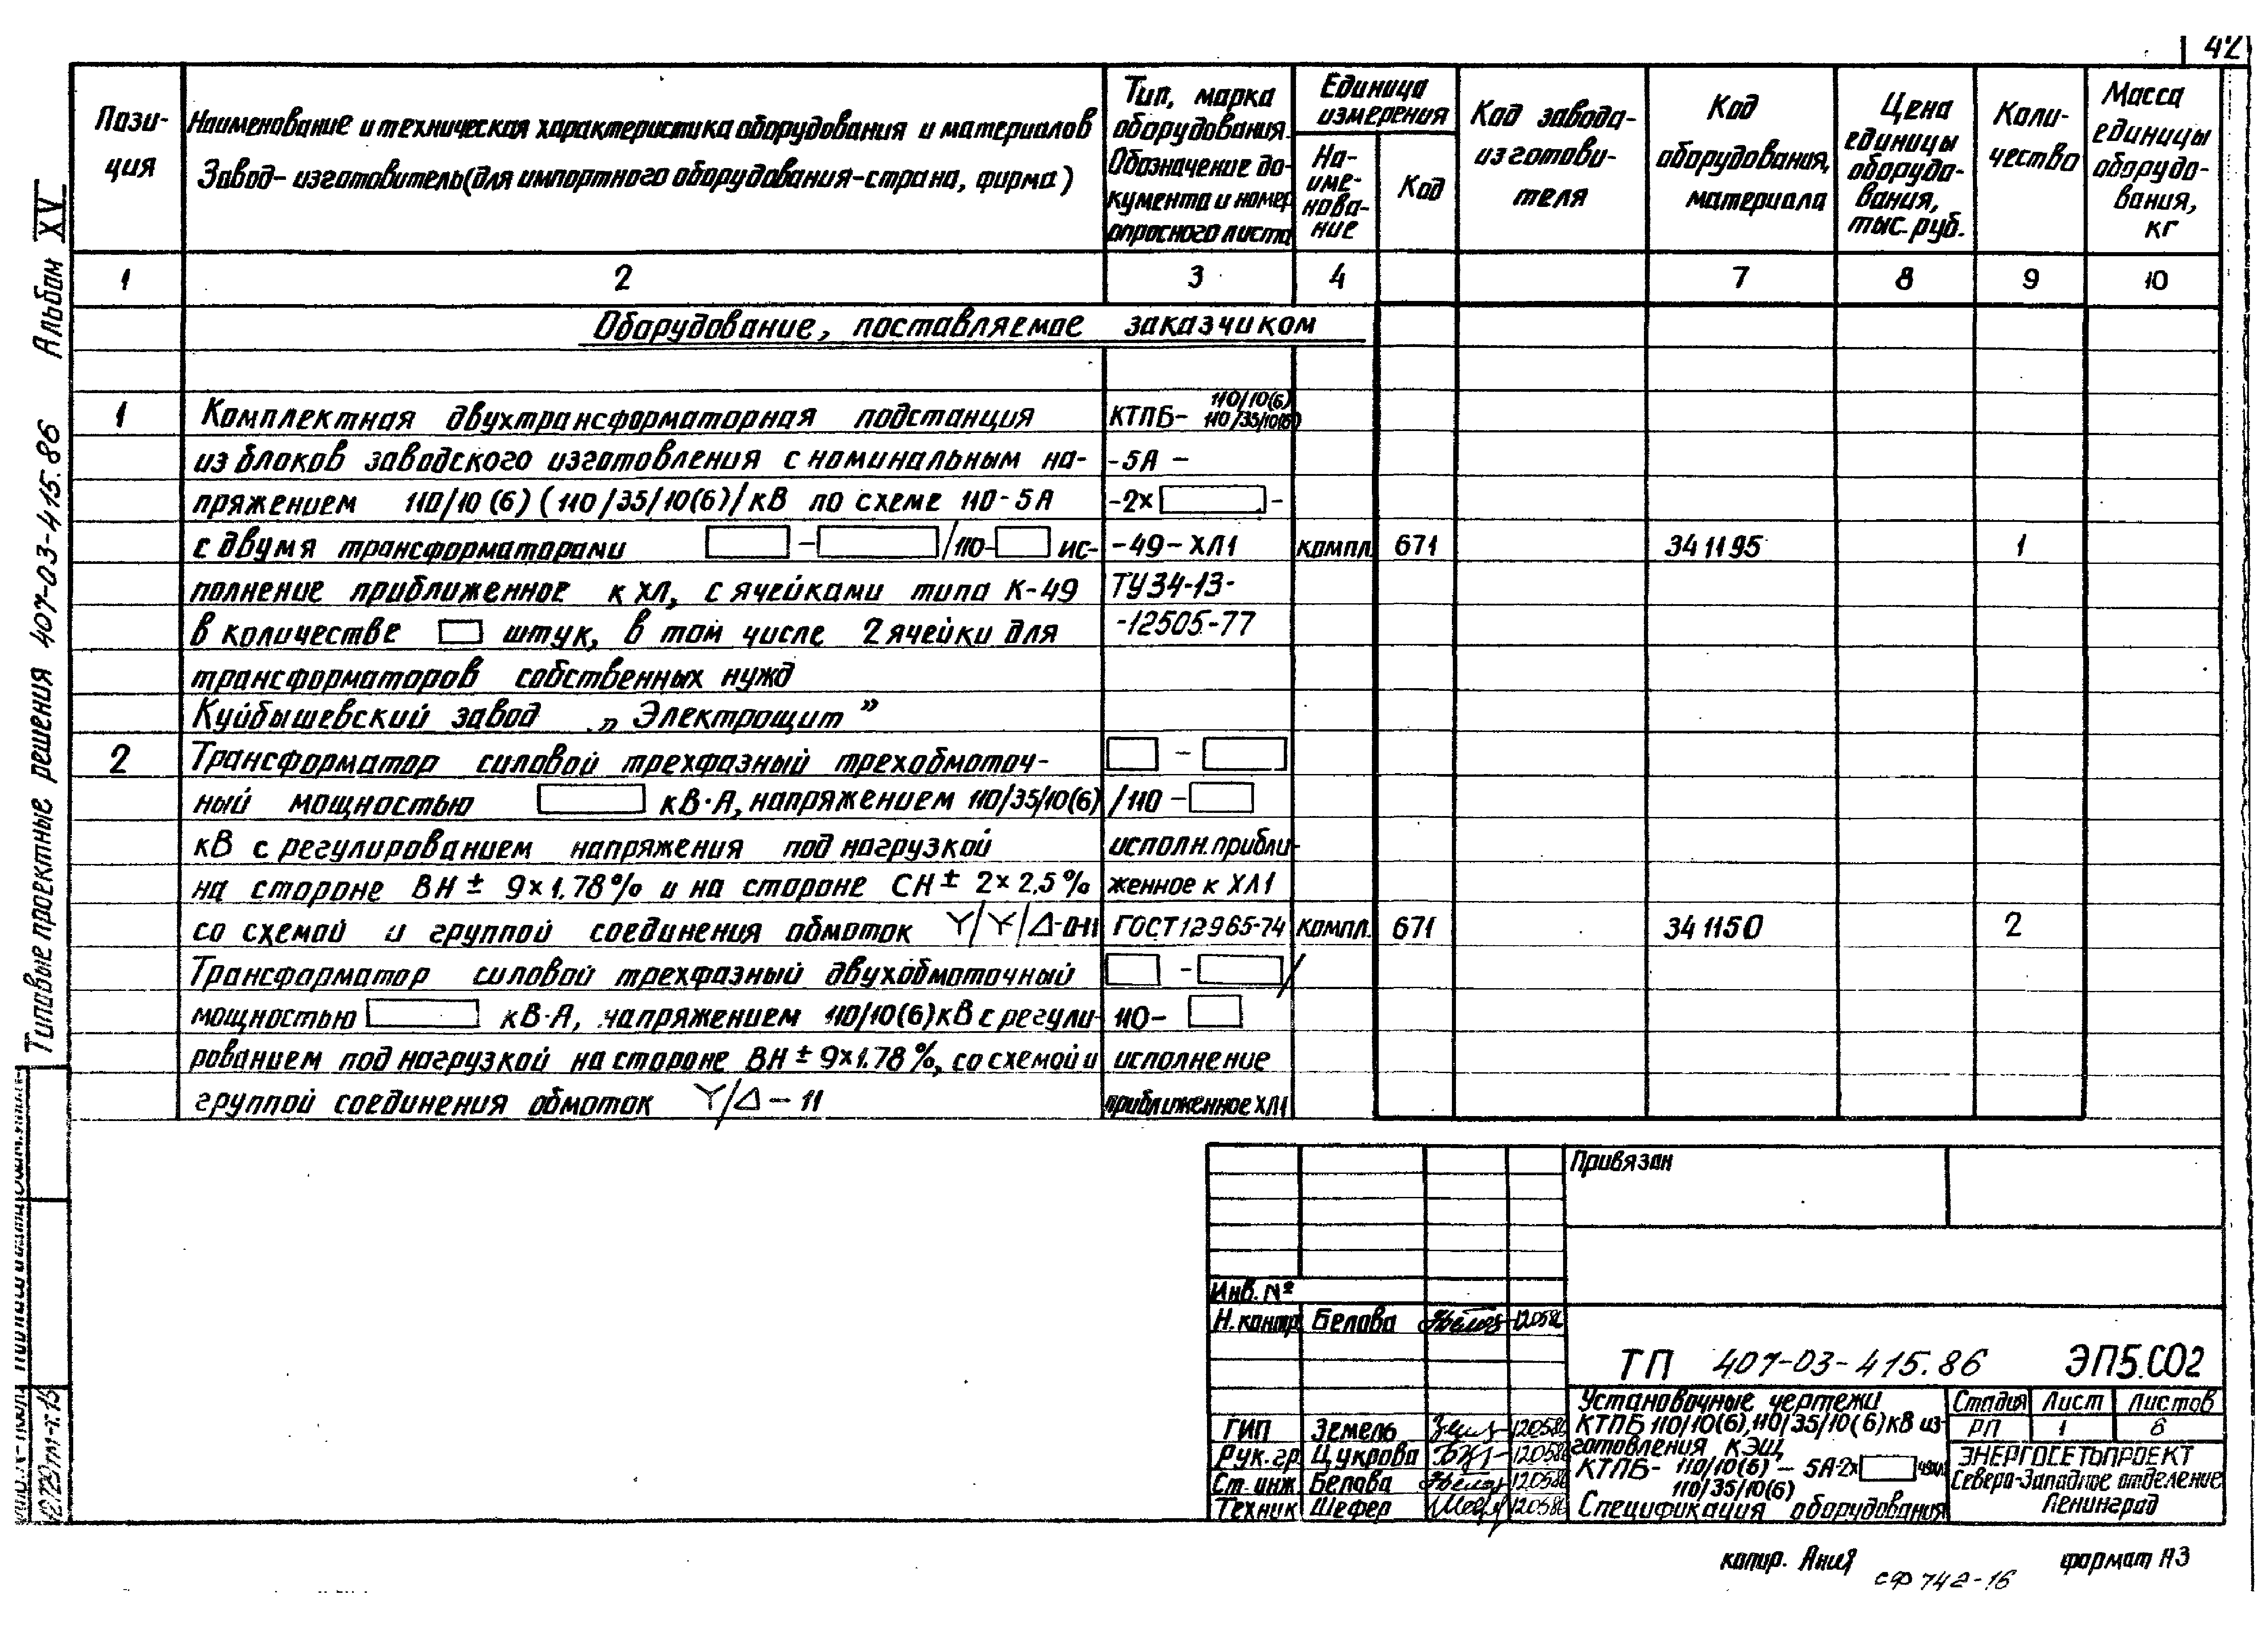 42
Пози-
ция
Наименование и техническая характеристика оборудования и материалов
Завод-изготовитель (для импортного оборудования-страна, фирма)
Тип, марка
оборудования.
Обозначение до-
кумента и номер
опросного листа
Единица
измерения
На-
име-
нова-
ние
Код
Код завода-
изготови-
теля
Код
оборудования,
материала
Цена
единицы
оборудо-
вания,
тыс. руб.
Коли-
чество
Масса
единицы
оборудо-
вания,
кг
1 2 3 4 7 8 9 10
Оборудование, поставляемое заказчиком
1 Комплектная двухтрансформаторная подстанция КТПБ- 110/10(6) 110/35/10(6)
из блоков заводского изготовления с номинальным на- -5А -
пряжением 110/10 (6) (110/35/10(6)/кВ по схеме 110-5А -2х -
с двумя трансформаторами - /110- ис- -49-ХЛ1 компл. 671 341195 1
полнение приближенное к ХЛ, с ячейками типа К-49 ТУ34-13-
в количестве штук, в том числе 2 ячейки для -12505-77
трансформаторов собственных нужд
Куйбышевский завод „Электрощит"
2 Трансформатор силовой трехфазный трехобмоточ- -
ный мощностью кВ·А, напряжением 110/35/10(6) /110 -
кВ с регулированием напряжения под нагрузкой исполн. прибли-
на стороне ВН ± 9×1.78% и на стороне СН ± 2×2,5% женное к ХЛ1
со схемой и группой соединения обмоток Y/Y/Δ-0-11 ГОСТ 12965-74 компл. 671 341150 2
Трансформатор силовой трехфазный двухобмоточный - /
мощностью кВ·А, напряжением 110/10(6)кВ с регули- 110-
рованием под нагрузкой на стороне ВН ± 9×1.78%, со схемой и исполнение
группой соединения обмоток Y/Δ - 11 приближенное ХЛ1
Альбом XV
Типовые проектные решения 407-03-415.86
12729тм-т.15
Привязан
Инв. №
Н. контр. Белова 120586
ТП 407-03-415.86 ЭП5.СО2
ГИП Земель 120586
Рук. гр. Цукрова 120586
Ст. инж Белова 120586
Техник Шефер 120586
Установочные чертежи
КТПБ 110/10(6), 110/35/10(6)кВ из-
готовления КЭЩ
КТПБ- 110/10(6) - 5А-2х 49ХЛ1
110/35/10(6)
Спецификация оборудования
Стадия Лист Листов
РП 1 6
ЭНЕРГОСЕТЬПРОЕКТ
Северо-Западное отделение
Ленинград
копир. Ания
формат А3
СФ 742-16